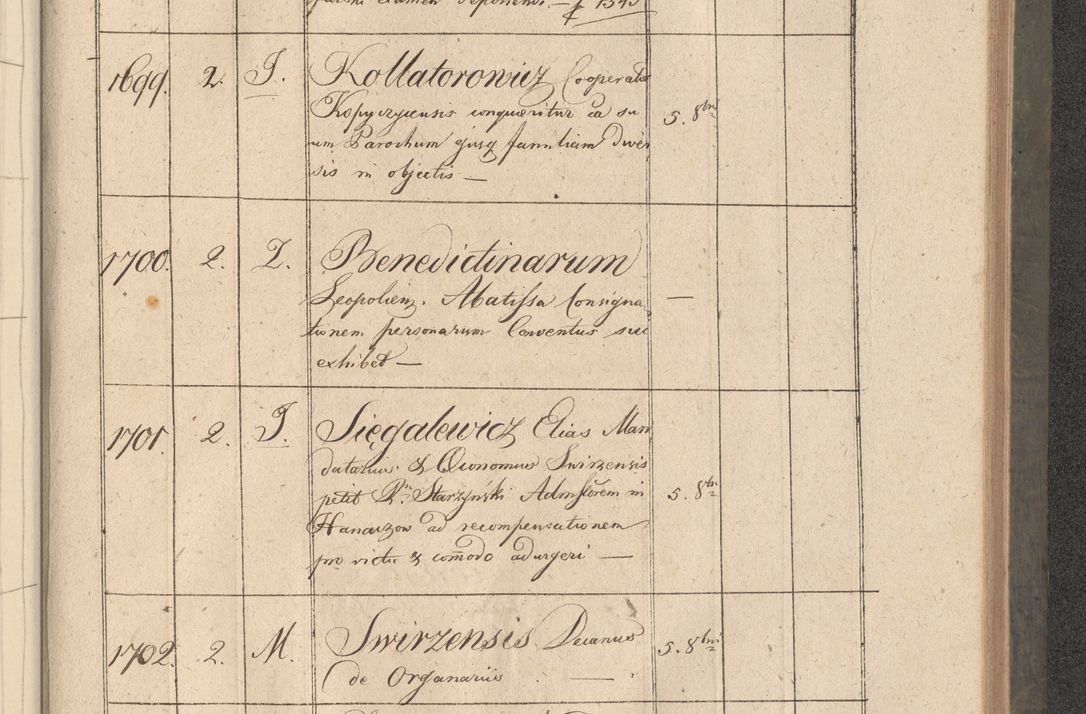 1699. 2. J. Kollatorowicz Cooperator
Kopyczyncensis conquæritur ca su 5. 8bris
um Parochum ejusq familiam diver
sis in objectis —
1700. 2. L. Benedictinarum
Leopoliens. Abatissa Consigna —
tionem personarum Conventus sui
exhibet —
1701. 2. J. Sięgalewicz Elias Man
datarius & Oeconomus Swirzensis
petit Rm. Starzyński Admstorem in 5. 8bris
Hanaczow ad recompensationem
pro victu & com̄odo adurgeri —
1702. 2. M. Swirzensis Decanus 5. 8bris
de Organariis —